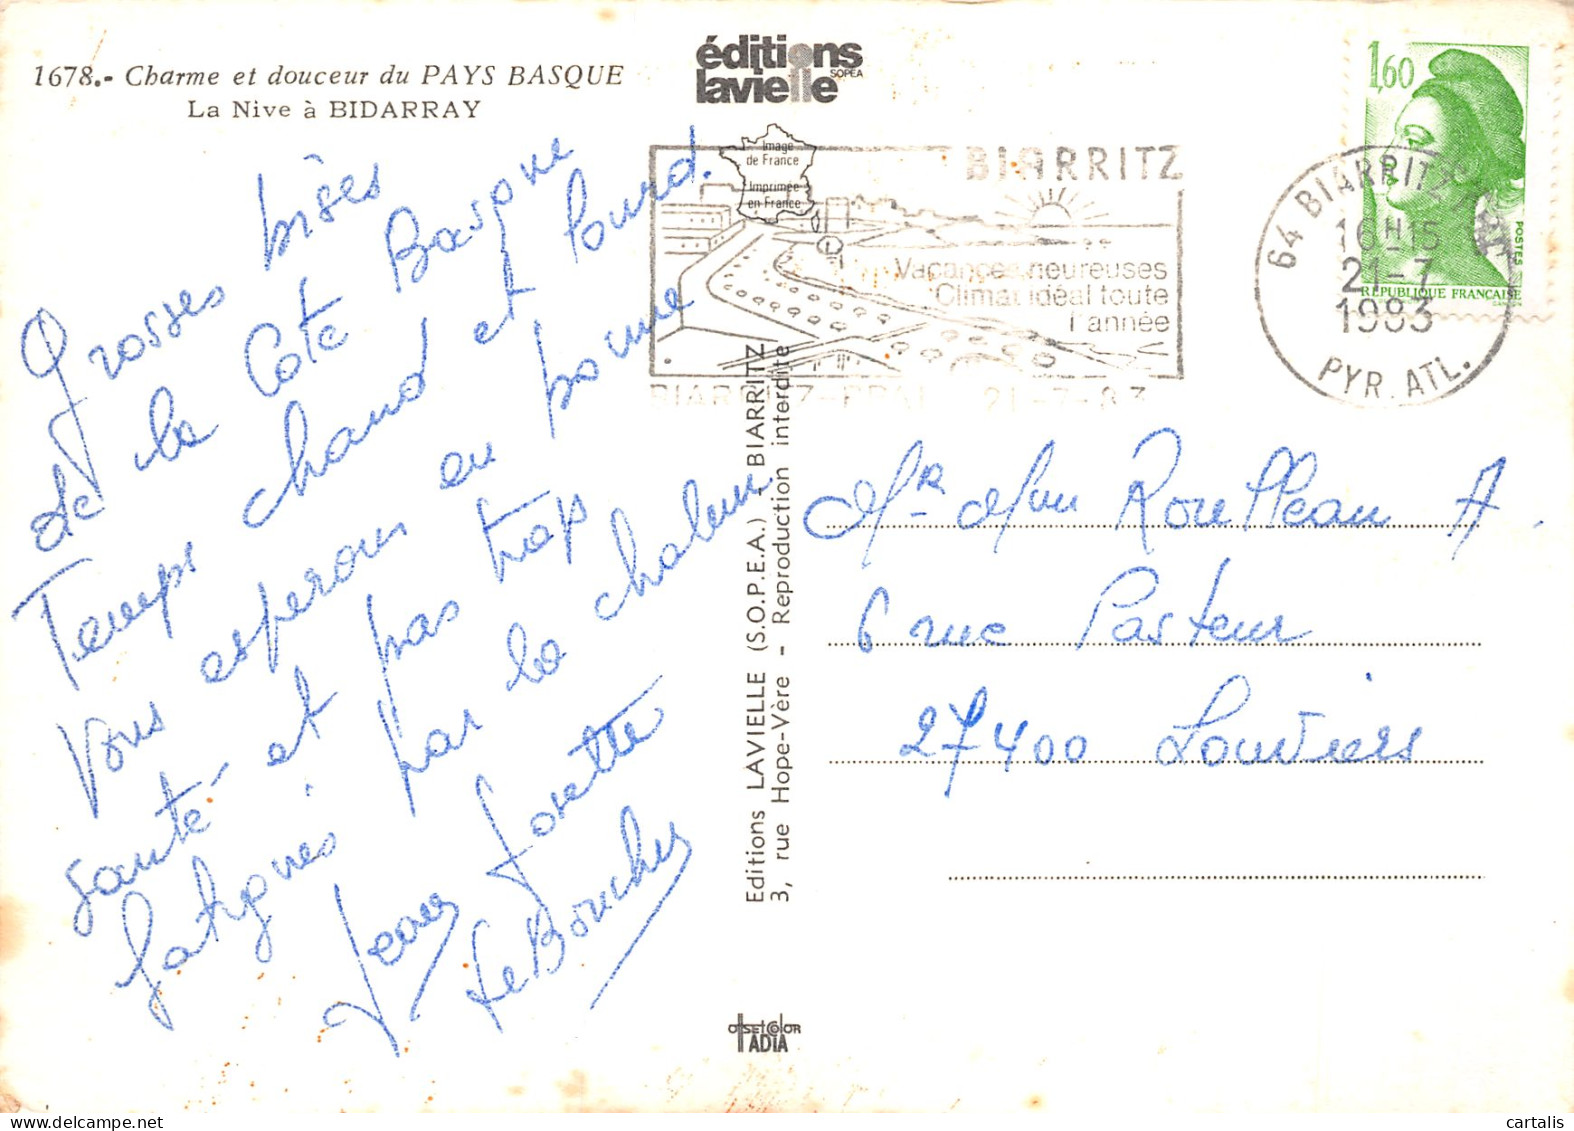 1678.- Charme et douceur du PAYS BASQUE
La Nive à BIDARRAY
éditions
lavielle
SOPEA
Image
de France
Imprimée
en France
BIARRITZ
Vacances heureuses
Climat idéal toute
l'année
BIARRITZ-PPAL 21-7-83
1,60
POSTES
REPUBLIQUE FRANÇAISE
64 BIARRITZ
16H15
21-7
1983
PYR. ATL.
Grosses bises
de la Côte Basque
Temps chaud et lourd.
Vous esperons en bonne
santé et pas trop
fatigués par la chaleur
Jean Josette
Le Boucher
Editions LAVIELLE (S.O.P.E.A.) - BIARRITZ
3, rue Hope-Vère - Reproduction interdite
Mr Mme Roulleau A.
6 rue Pasteur
27400 Louviers
OFFSET COLOR
ADIA
© cartalis delcampe.net